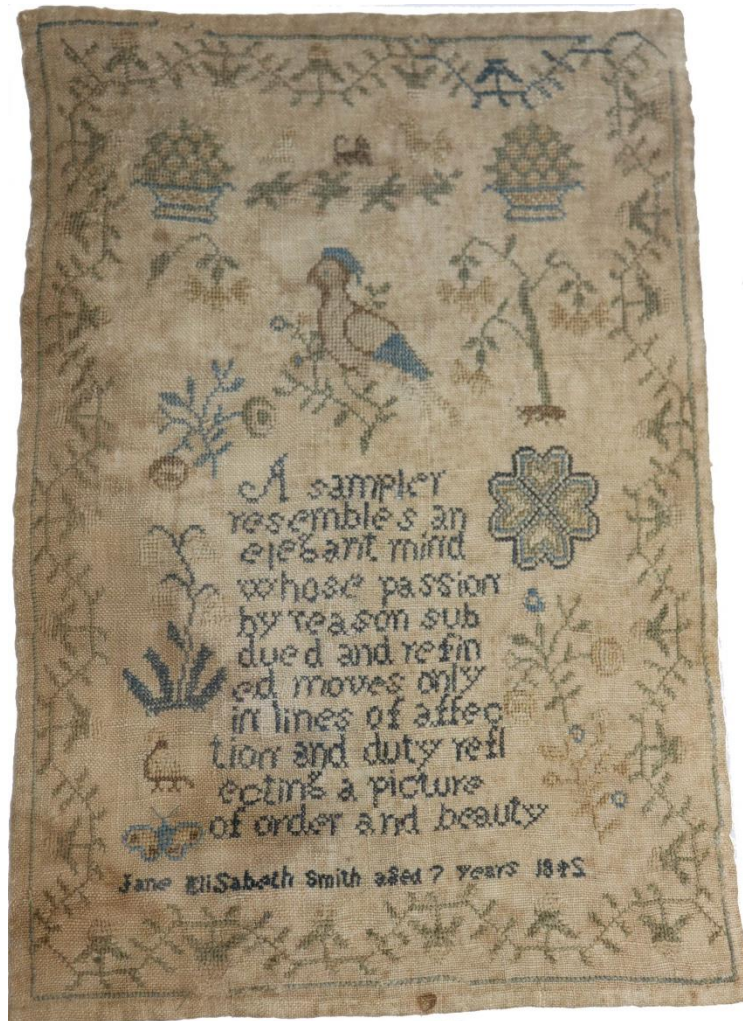 A sampler
resembles an
elegant mind
whose passion
by reason sub
dued and refin
ed moves only
in lines of affec
tion and duty refl
ecting a picture
of order and beauty
Jane EliSabeth Smith aged 7 years 1842